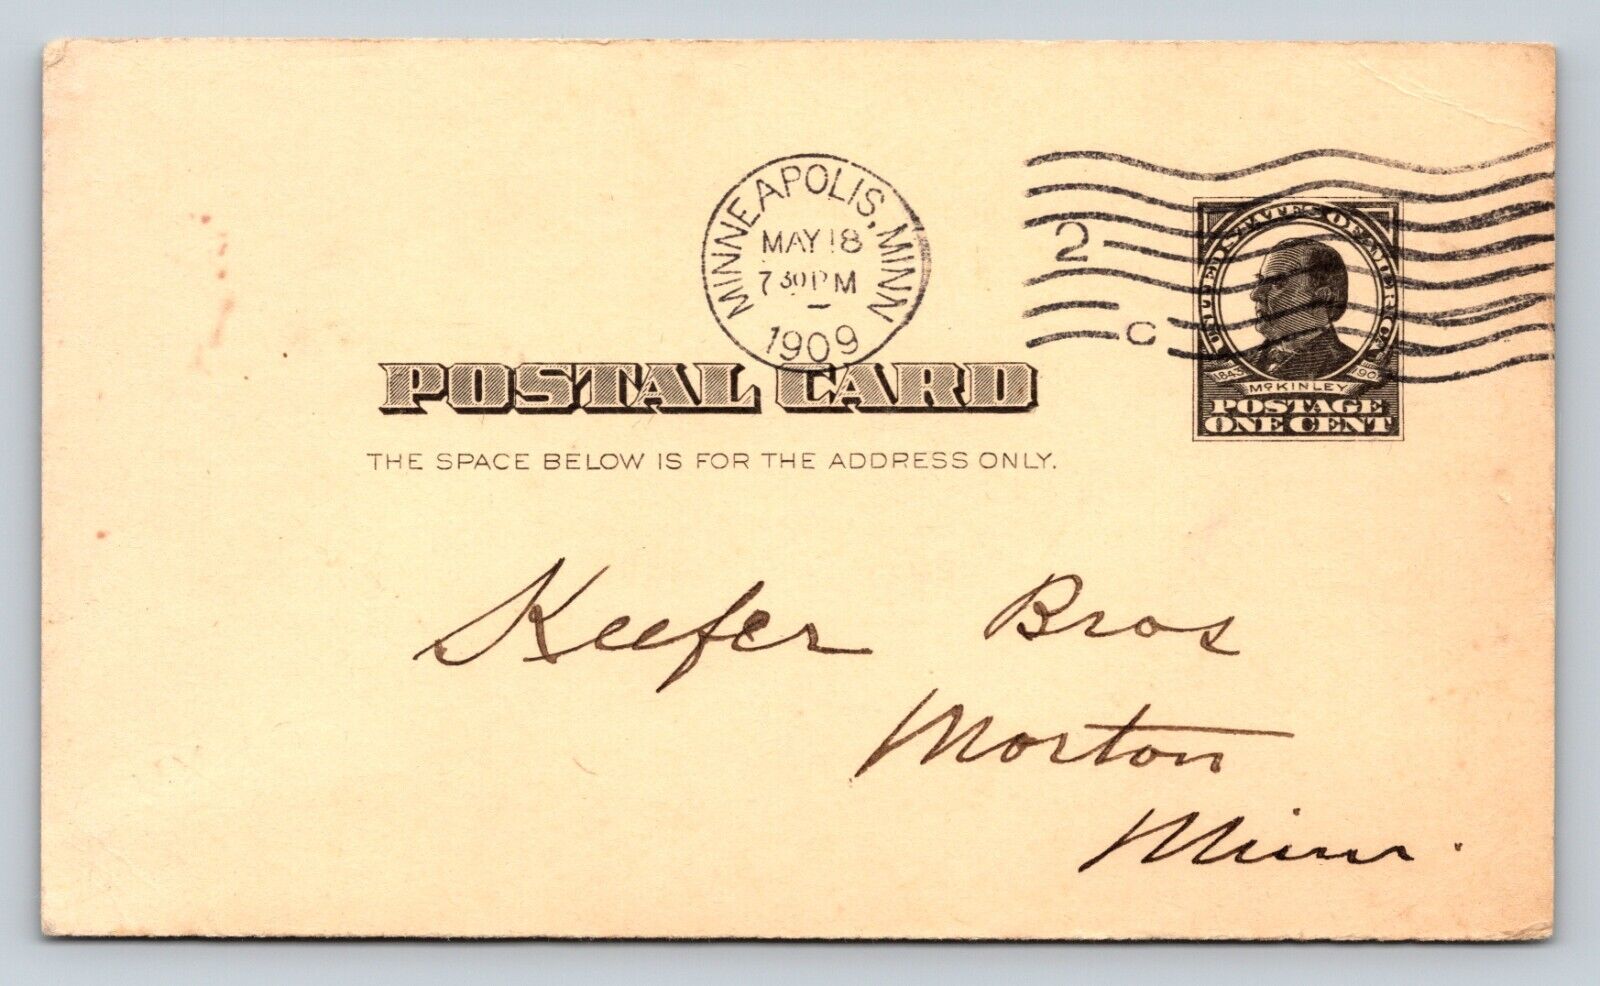 MINNEAPOLIS, MINN
MAY 18
7 30 PM
1909
2
C
UNITED STATES OF AMERICA
1843
McKINLEY
POSTAGE
ONE CENT
POSTAL CARD
THE SPACE BELOW IS FOR THE ADDRESS ONLY.
Keefer Bros
Morton
Minn.